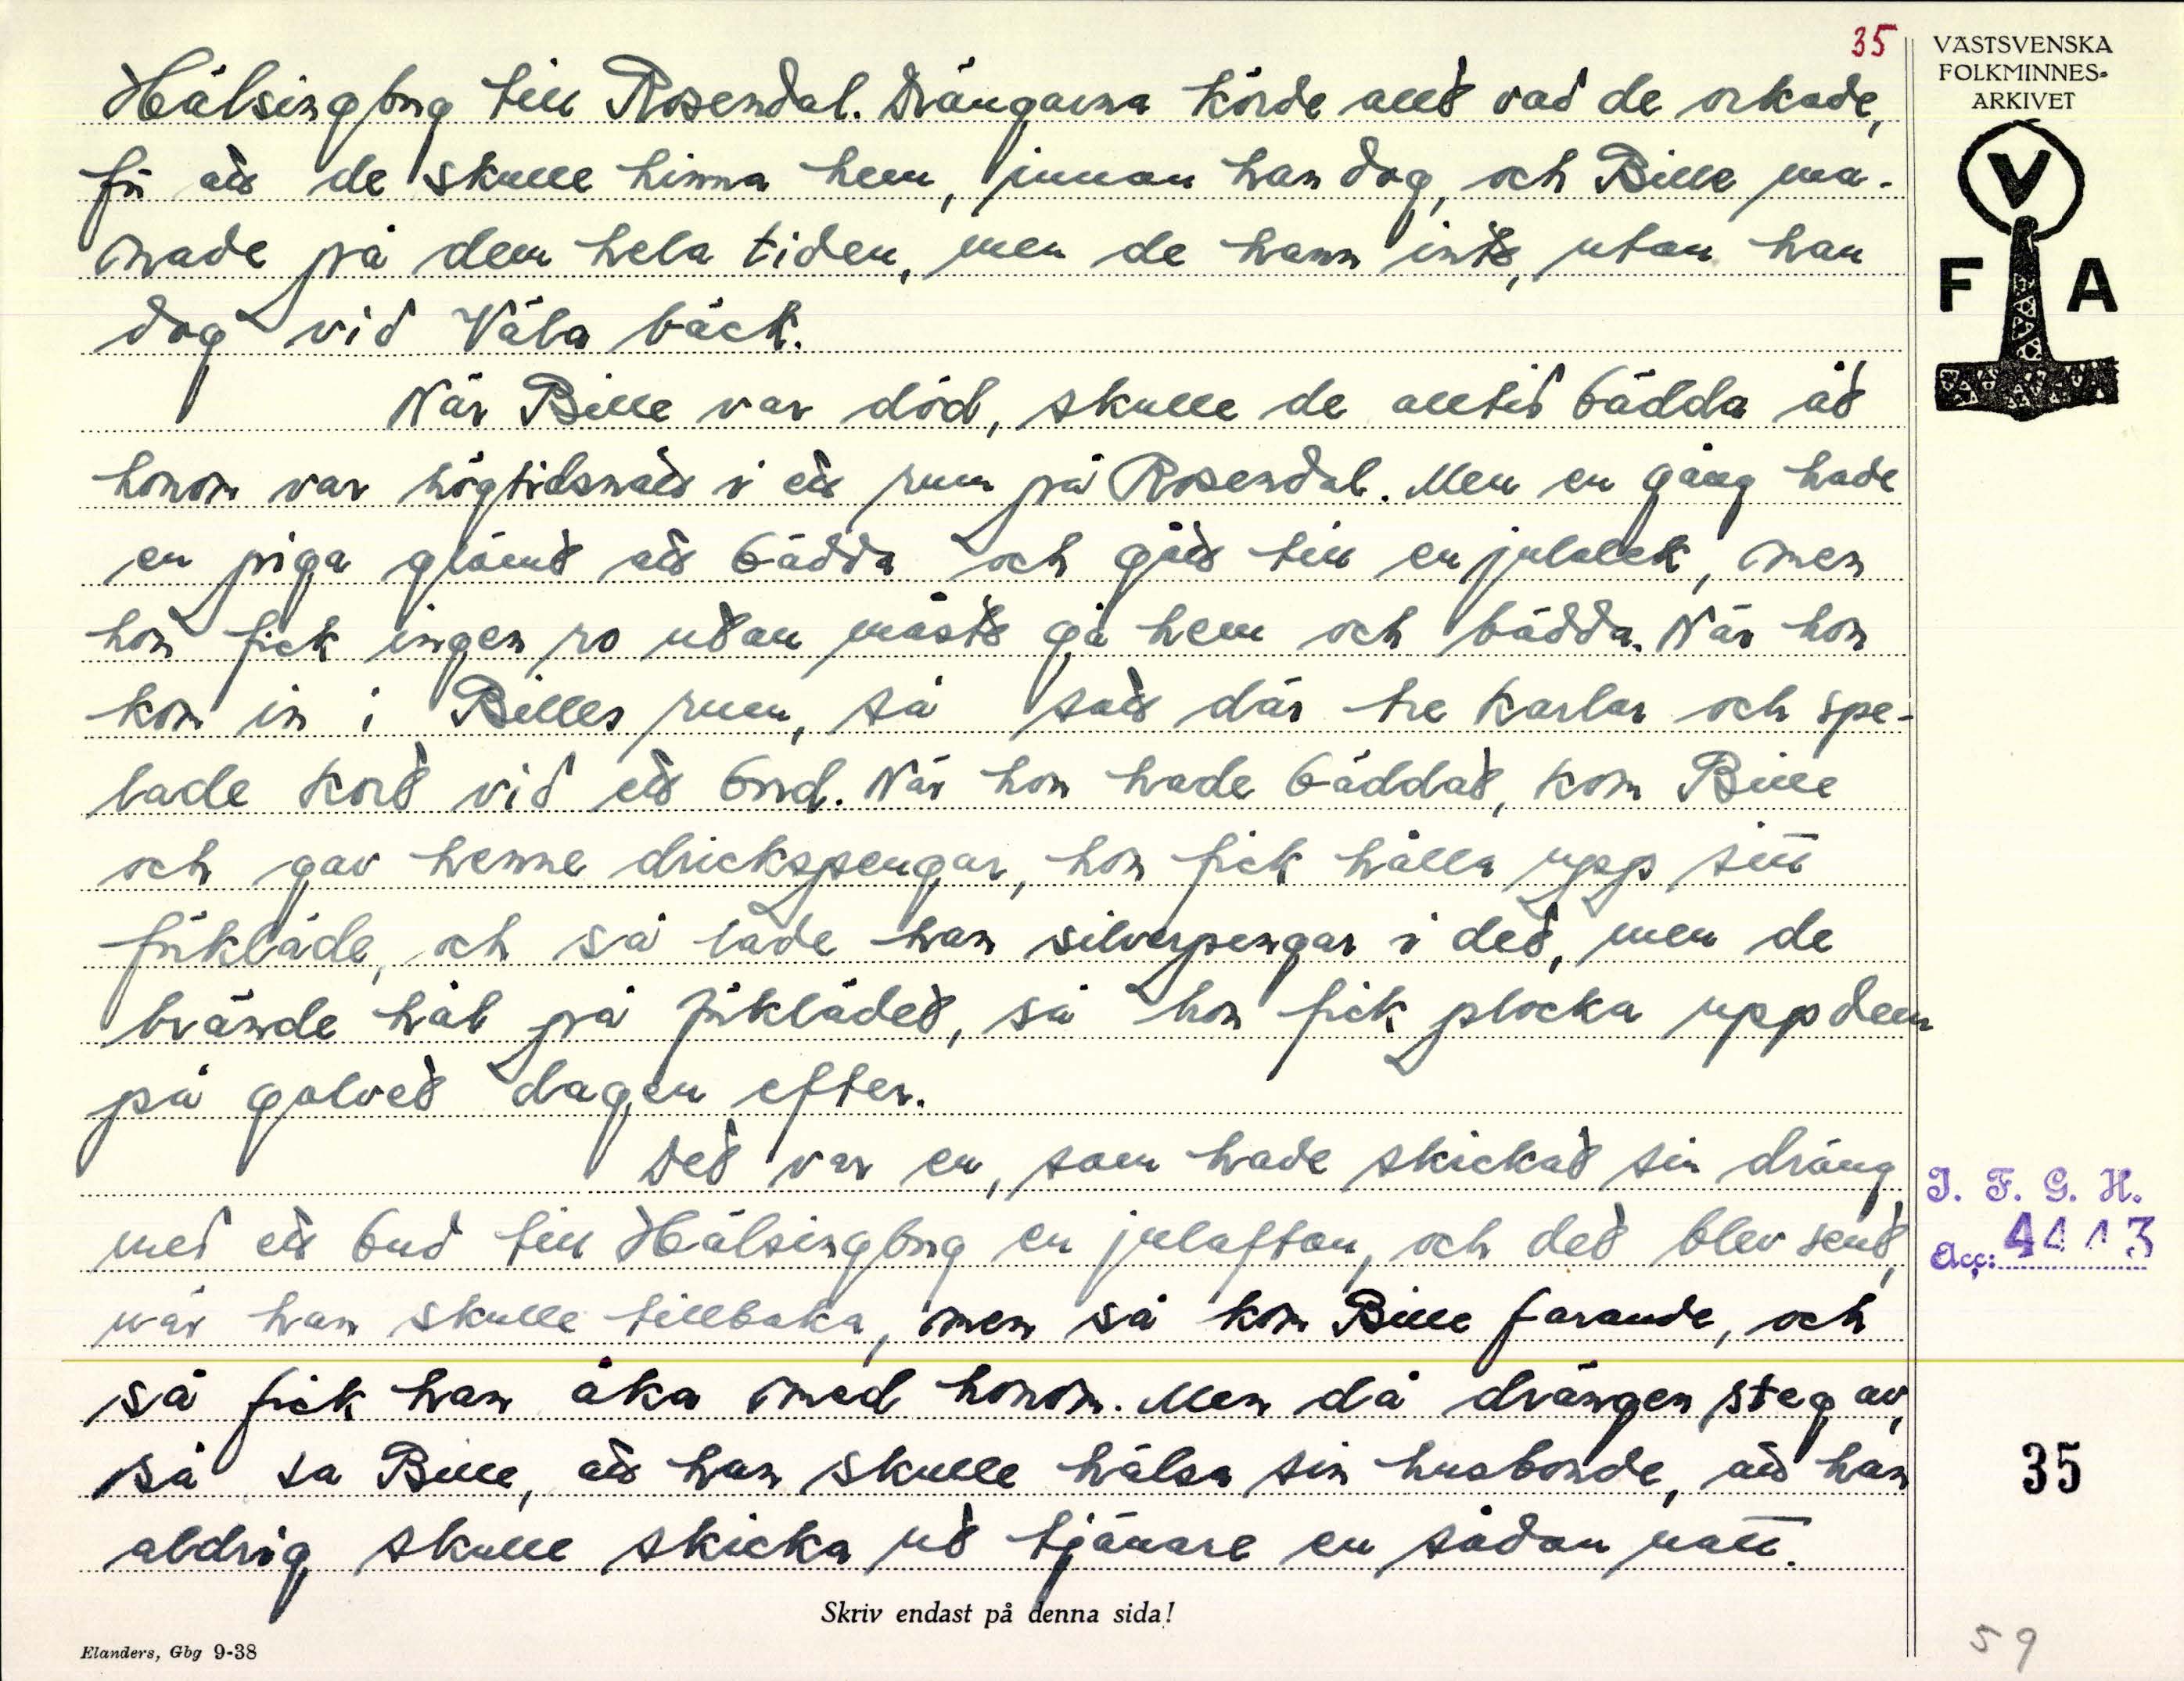 35
VÄSTSVENSKA
FOLKMINNES-
ARKIVET
V
F A
Hälsingborg till Rosendal. Drängarna körde allt vad de orkade,
för att de skulle hinna hem, innan han dog, och Bille ma-
nade på dem hela tiden, men de hann inte, utan han
dog vid Väla bäck.
När Bille var död, skulle de alltid bädda åt
honom var högtidsnatt i ett rum på Rosendal. Men en gång hade
en piga glömt att bädda och gått till en julalek, men
hon fick ingen ro utan måste gå hem och bädda. När hon
kom in i Billes rum, så satt där tre karlar och spe-
lade kort vid ett bord. När hon hade bäddat, kom Bille
och gav henne drickspengar, hon fick hålla upp sitt
förkläde, och så lade han silverpengar i det, men de
brände hål på förklädet, så hon fick plocka upp dem
på golvet dagen efter.
Det var en, som hade skickat sin dräng
med ett bud till Hälsingborg en julafton, och det blev sent,
när han skulle tillbaka, men så kom Bille farande, och
så fick han åka med honom. Men då drängen steg av,
så sa Bille, att han skulle hälsa sin husbonde, att han
aldrig skulle skicka ut tjänare en sådan natt.
I. F. G. H.
Acc: 4413
35
Skriv endast på denna sida!
Elanders, Gbg 9-38
59